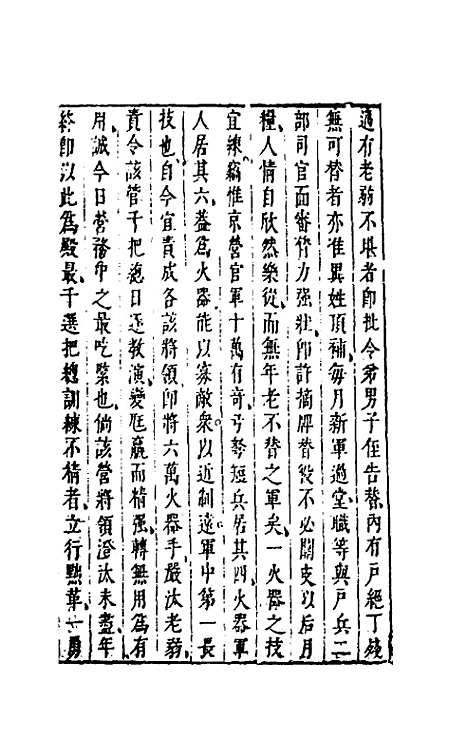 過有老弱不堪者卽批令弟男子侄告替內有戸絕丁殘
無可替者亦准異姓頂補每月新軍過堂職等與戸兵二
部司官面審膂力强壯卽許摘牌替役不必關支以后月
糧人情自欣然樂從而無年老不替之軍矣一火器之技
宜練竊惟京營官軍十萬有奇弓弩短兵居其四火器軍
人居其六蓋爲火器能以寡敵衆以近制遠軍中第一長
技也自今宜責成各該將領卽將六萬火器手嚴汰老弱
責令該營千把總日逐教演變尫羸而精强轉無用爲有
用誠今日營務中之最吃緊也倘該營將領澄汰未盡年
終卽以此爲殿最千選把總訓練不精者立行黜革一勇